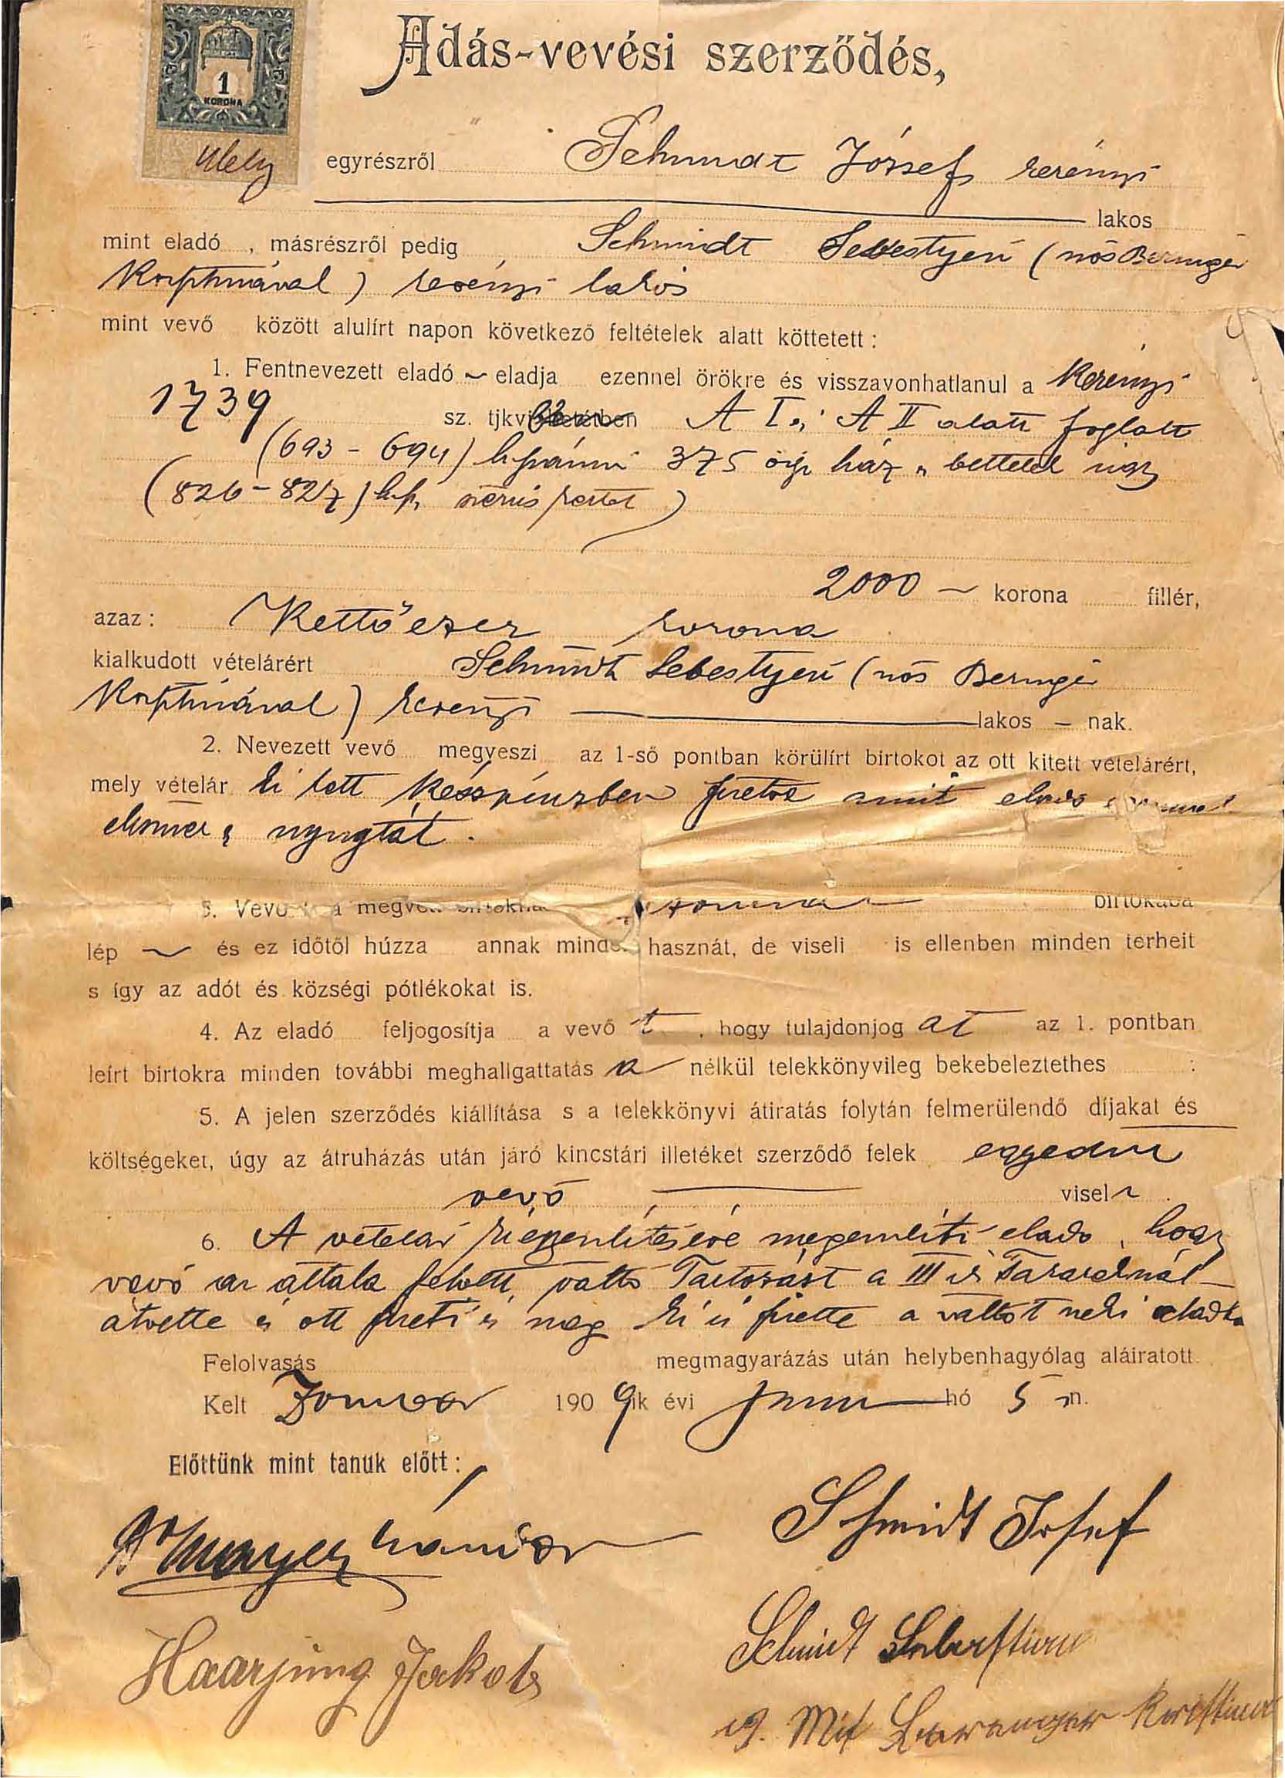 Adás-vevési szerződés,
1
KORONA
egyrészről Schmidt József kerényi
lakos
mint eladó , másrészről pedig Schmidt Sebestyén (nős Beringer
Krisztinával) kerényi lakós
mint vevő között alulírt napon következő feltételek alatt köttetett:
1. Fentnevezett eladó ~ eladja ezennel örökre és visszavonhatlanul a Kerényi
1739 sz. tjkv A I., A II alatt foglalt
(693 - 694) 375 öl ház
(826 - 827)
2000 ~ korona fillér,
azaz: Kettőezer korona
kialkudott vételárért Schmidt Sebestyén (nős Beringer
Krisztinával) kerényi lakos - nak.
2. Nevezett vevő megveszi az 1-ső pontban körülírt birtokot az ott kitett vételárért,
mely vételár ki lett készpénzben fizetve amit eladó
elismer s nyugtát.
3. Vevő a megvett birtokába
lép ~ és ez időtől húzza annak minden hasznát, de viseli is ellenben minden terheit
s így az adót és községi pótlékokat is.
4. Az eladó feljogosítja a vevő t , hogy tulajdonjog át az 1. pontban
leírt birtokra minden további meghallgattatás a nélkül telekkönyvileg bekebeleztethes
5. A jelen szerződés kiállítása s a telekkönyvi átiratás folytán felmerülendő díjakat és
költségeket, úgy az átruházás után járó kincstári illetéket szerződő felek egyedül
vevő visel
6. A vételár kiegyenlítésére megemlíti eladó, hogy
vevő az általa felvett váltó tartozást a III
átvette és ott fizeti és meg ki is fizette a váltót neki
Felolvasás megmagyarázás után helybenhagyólag aláiratott.
Kelt Zombor 1909ik évi hó 5 n.
Előttünk mint tanuk előtt:
Dr Mayer Nándor
Schmidt Josef
Haarjung Jakob
Schmidt Sebastian